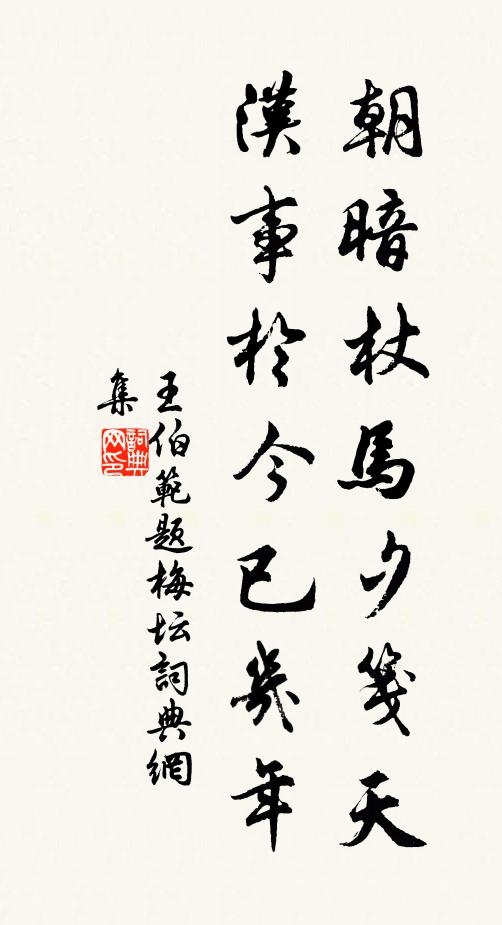 朝暗杖馬夕箋天
漢事於今已幾年
王伯範题梅坛詞典網
集
詞典
网印